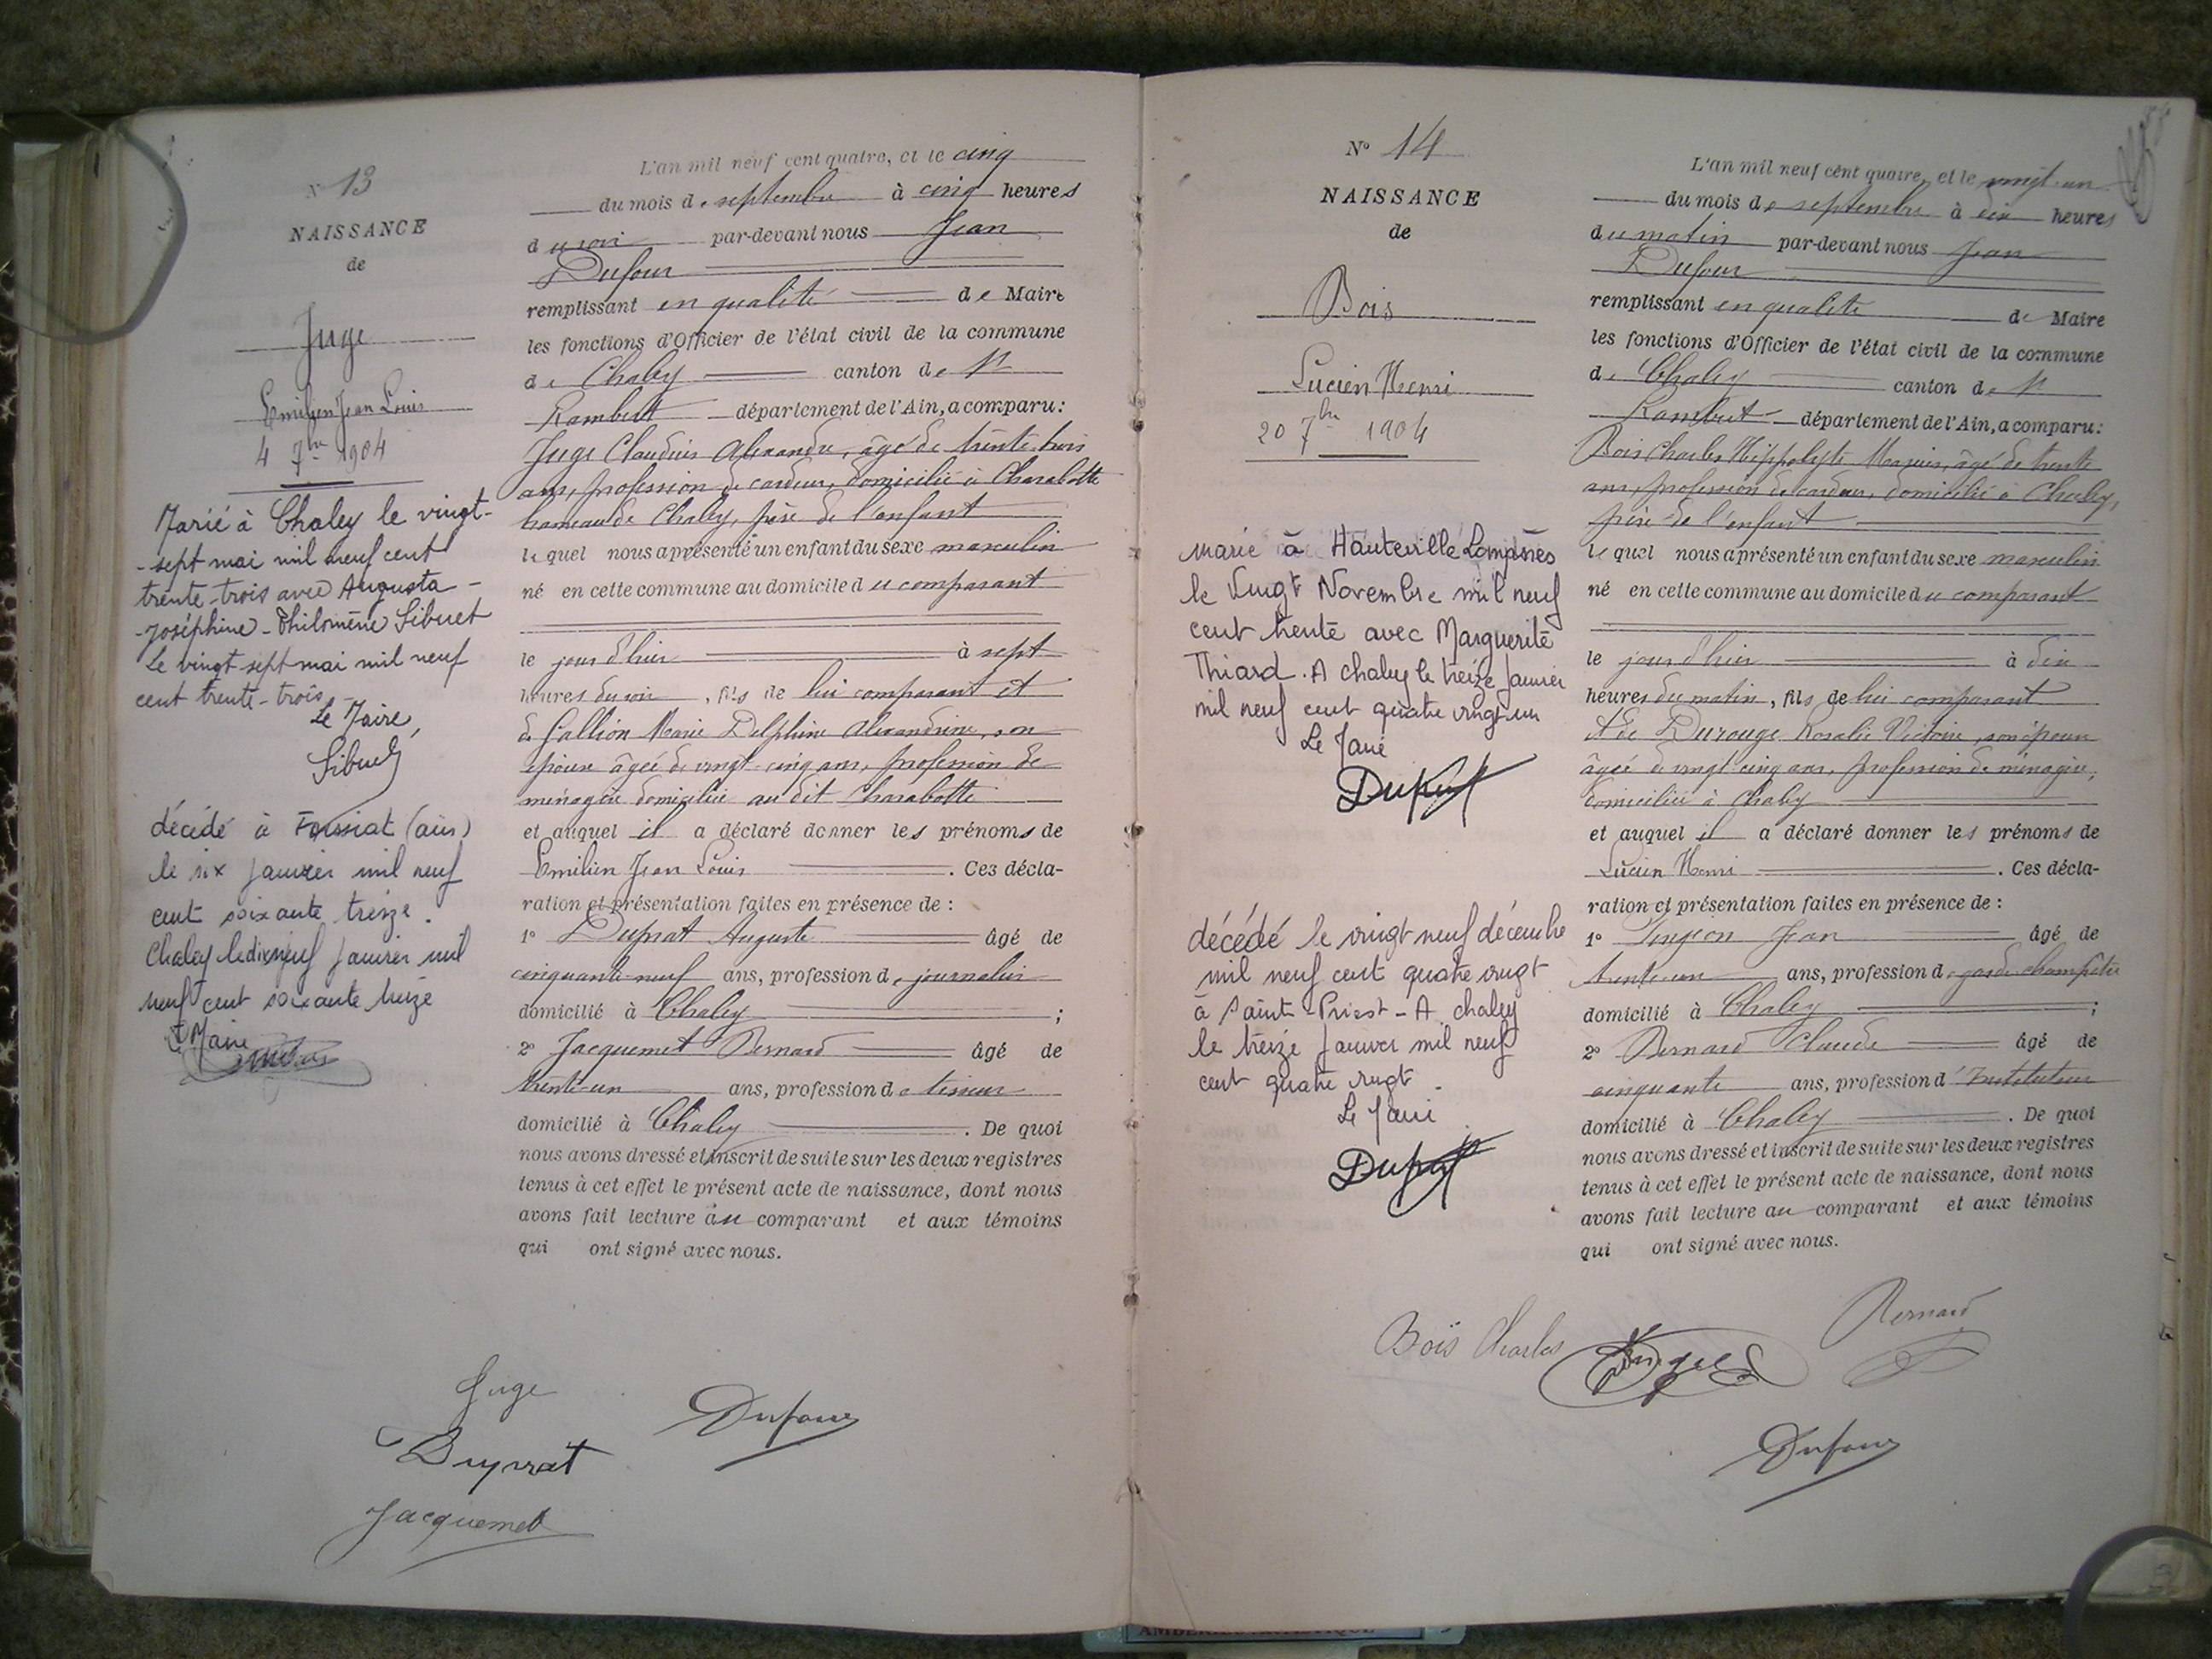 N° 13
NAISSANCE
de
Juge
Emilien Jean Louis
4 7bre 1904
Marié à Chaley le vingt-
-sept mai mil neuf cent
trente-trois avec Augusta-
-Joséphine-Philomène Sibuet
Le vingt sept mai mil neuf
cent trente-trois-
Le Maire,
Sibuet
décédé à Foissiat (ain)
le six janvier mil neuf
cent soixante treize.
Chaley le dixneuf janvier mil
neuf cent soixante treize
Le Maire
L'an mil neuf cent quatre, et le cinq
du mois de septembre à cinq heures
du soir par-devant nous Jean
Dufour
remplissant en qualité de Maire
les fonctions d'Officier de l'état civil de la commune
de Chaley canton de St
Rambert département de l'Ain, a comparu:
Juge Claudius Alexandre, âgé de trente-trois
ans, profession de cardeur, domicilié à Charabotte
hameau de Chaley, père de l'enfant
lequel nous a présenté un enfant du sexe masculin
né en cette commune au domicile du comparant
le jour d'hier à sept
heures du soir, fils de lui comparant et
de Gallion Marie Delphine Alexandrine, son
épouse âgée de vingt-cinq ans, profession de
ménagère domiciliée au dit Charabotte
et auquel il a déclaré donner les prénoms de
Emilien Jean Louis. Ces décla-
ration et présentation faites en présence de :
1° Duprat Auguste âgé de
cinquante-neuf ans, profession de journalier
domicilié à Chaley ;
2° Jacquemet Bernard âgé de
trente-un ans, profession de tisseur
domicilié à Chaley. De quoi
nous avons dressé et inscrit de suite sur les deux registres
tenus à cet effet le présent acte de naissance, dont nous
avons fait lecture au comparant et aux témoins
qui ont signé avec nous.
Juge
Duprat
Dufour
Jacquemet
N° 14
NAISSANCE
de
Bois
Lucien Henri
20 7bre 1904
Marié à Hauteville Lompnès
le Vingt Novembre mil neuf
cent trente avec Marguerite
Thiard. A chaley le treize Janvier
mil neuf cent quatre vingt un
Le Maire
décédé le vingt neuf décembre
mil neuf cent quatre vingt
à Saint-Priest - A chaley
le treize Janvier mil neuf
cent quatre vingt.
Le Maire
L'an mil neuf cent quatre, et le vingt-un
du mois de septembre à dix heures
du matin par-devant nous Jean
Dufour
remplissant en qualité de Maire
les fonctions d'Officier de l'état civil de la commune
de Chaley canton de St
Rambert département de l'Ain, a comparu:
Bois Charles Hippolyte, âgé de trente
ans, profession de cardeur, domicilié à Chaley,
père de l'enfant
lequel nous a présenté un enfant du sexe masculin
né en cette commune au domicile du comparant
le jour d'hier à dix
heures du matin, fils de lui comparant
et de Durouge Rosalie Victoire, son épouse
âgée de vingt-cinq ans, profession de ménagère,
domiciliée à Chaley
et auquel il a déclaré donner les prénoms de
Lucien Henri. Ces décla-
ration et présentation faites en présence de :
1° Jean âgé de
trente-un ans, profession de garde champêtre
domicilié à Chaley ;
2° Bernard Claude âgé de
cinquante ans, profession d'Instituteur
domicilié à Chaley. De quoi
nous avons dressé et inscrit de suite sur les deux registres
tenus à cet effet le présent acte de naissance, dont nous
avons fait lecture au comparant et aux témoins
qui ont signé avec nous.
Bois Charles
Bernard
Dufour